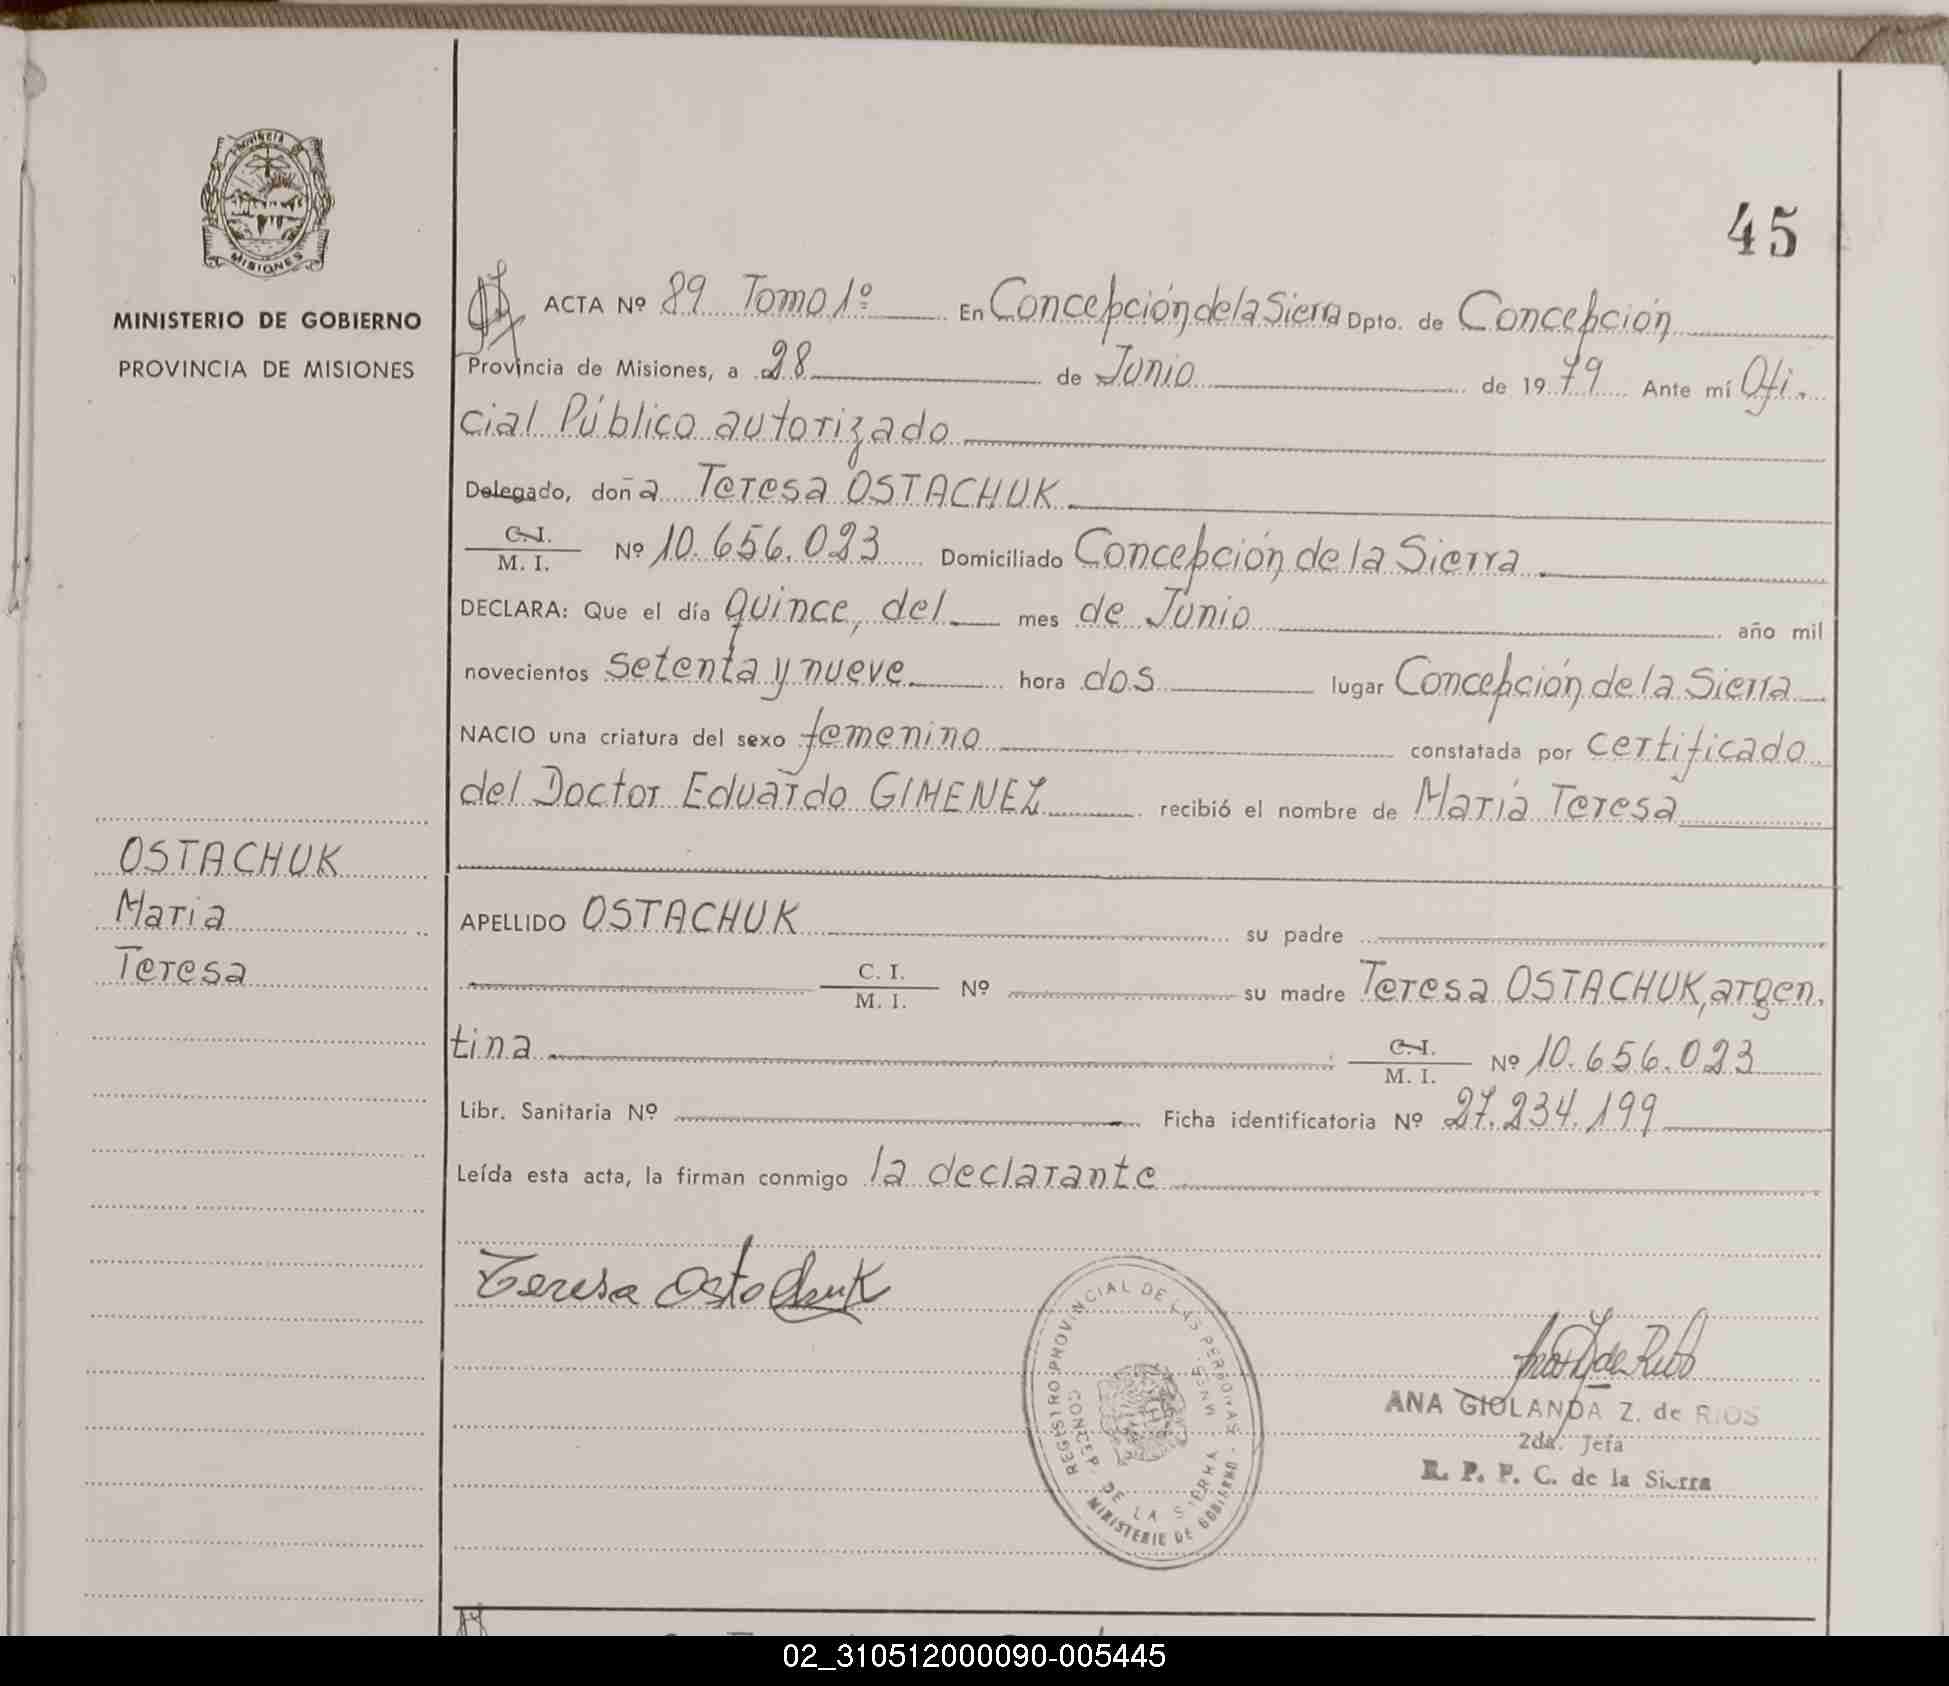 PROVINCIA DE
MISIONES
MINISTERIO DE GOBIERNO
PROVINCIA DE MISIONES
45
ACTA Nº 89 Tomo 1º En Concepción de la Sierra Dpto. de Concepción
Provincia de Misiones, a 28 de Junio de 1979 Ante mí Ofi-
cial Público autorizado
Delegado, doña Teresa OSTACHUK
C. I.
M. I. Nº 10.656.023 Domiciliado Concepción de la Sierra
DECLARA: Que el día quince, del mes de Junio año mil
novecientos setenta y nueve hora dos lugar Concepción de la Sierra
NACIO una criatura del sexo femenino constatada por certificado
del Doctor Eduardo GIMENEZ recibió el nombre de María Teresa
OSTACHUK
Maria
Teresa
APELLIDO OSTACHUK su padre
C. I.
M. I. Nº su madre Teresa OSTACHUK, argen-
tina C. I.
M. I. Nº 10.656.023
Libr. Sanitaria Nº Ficha identificatoria Nº 27.234.199
Leída esta acta, la firman conmigo la declarante
Teresa Ostachuk
REGISTRO PROVINCIAL DE LAS PERSONAS
CONCEP. DE LA SIERRA - MNES.
MINISTERIE DE GOBIERNO
ANA GIOLANDA Z. de RIOS
2da. Jefa
R. P. P. C. de la Sierra
02_310512000090-005445